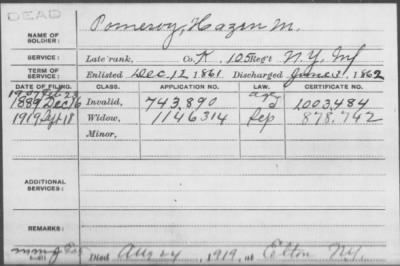 DEAD
NAME OF SOLDIER: Pomeroy, Hazen M.
SERVICE: Late rank, Co. K, 105 Regt N.Y. Inf
TERM OF SERVICE: Enlisted Dec. 12, 1861, Discharged June 3, 1862
DATE OF FILING. CLASS. APPLICATION NO. LAW. CERTIFICATE NO.
1907 Feb 23 age
1889 Dec 16 Invalid, 743,890 2 1003,484
1919 Sept 18 Widow, 1146314 Sep 878,742
Minor,
ADDITIONAL SERVICES:
REMARKS:
Died Aug 24, 1919, at Elton N.Y.